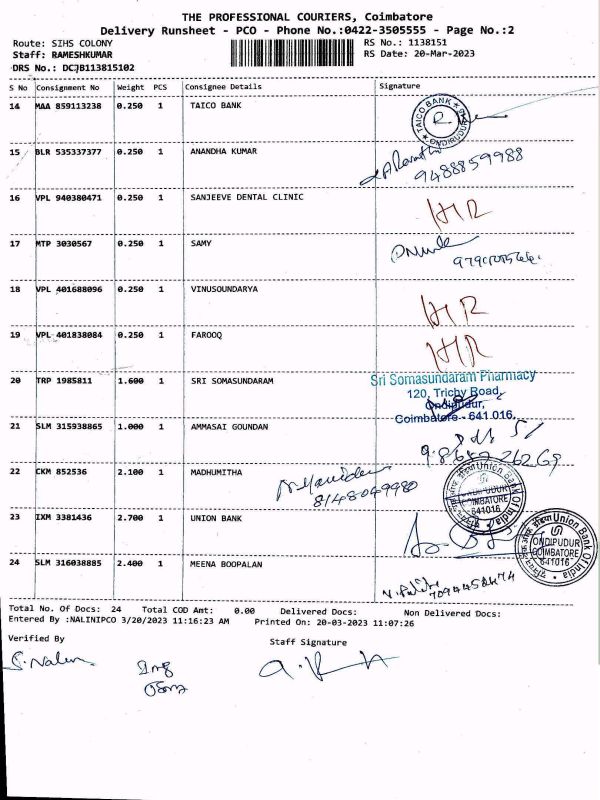 THE PROFESSIONAL COURIERS, Coimbatore
Delivery Runsheet - PCO - Phone No.:0422-3505555 - Page No.:2
Route: SIHS COLONY
RS No.: 1138151
Staff: RAMESHKUMAR
RS Date: 20-Mar-2023
DRS No.: DCJB113815102
S No Consignment No Weight PCS Consignee Details Signature
14 MAA 859113238 0.250 1 TAICO BANK
TAICO BANK ONDIPUDUR
15 BLR 535337377 0.250 1 ANANDHA KUMAR
9488859988
16 VPL 940380471 0.250 1 SANJEEVE DENTAL CLINIC
17 MTP 3030567 0.250 1 SAMY
18 VPL 401688096 0.250 1 VINUSOUNDARYA
19 VPL 401838084 0.250 1 FAROOQ
20 TRP 1985811 1.600 1 SRI SOMASUNDARAM
Sri Somasundaram Pharmacy
120, Trichy Road,
Ondipudur,
Coimbatore - 641 016.
21 SLM 315938865 1.000 1 AMMASAI GOUNDAN
22 CKM 852536 2.100 1 MADHUMITHA
8148049980
Union Bank Of India
ONDIPUDUR
COIMBATORE
641016
23 IXM 3381436 2.700 1 UNION BANK
Union Bank Of India
ONDIPUDUR
COIMBATORE
641016
24 SLM 316038885 2.400 1 MEENA BOOPALAN
7094458474
Total No. Of Docs: 24 Total COD Amt: 0.00 Delivered Docs: Non Delivered Docs:
Entered By :NALINIPCO 3/20/2023 11:16:23 AM Printed On: 20-03-2023 11:07:26
Verified By
Staff Signature